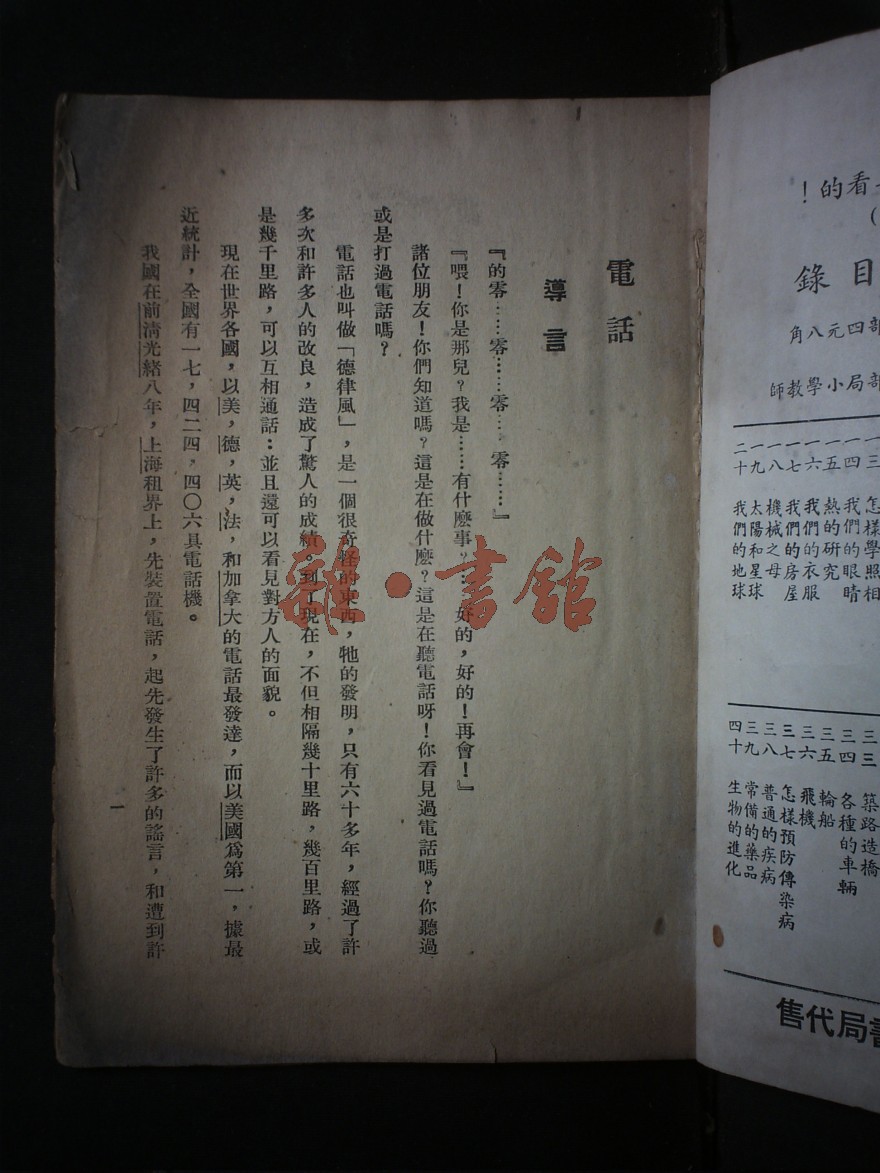 看的！
（
目錄
部四元八角
部局小學教師
一三　怎樣學照相
一四　我們的眼睛
一五　熱的研究
一六　我們的衣服
一七　我們的房屋
一八　機械之母
一九　太陽和星球
二十　我們的地球
三三　築路造橋
三四　各種的車輛
三五　輪船
三六　飛機
三七　怎樣預防傳染病
三八　普通的疾病
三九　常備的藥品
四十　生物的進化
書局代售
電話
導言
『的零……零……零……零……』
『喂！你是那兒？我是……有什麽事？…好的，好的！再會！』
諸位朋友！你們知道嗎？這是在做什麽？這是在聽電話呀！你看見過電話嗎？你聽過
或是打過電話嗎？
電話也叫做「德律風」，是一個很奇怪的東西，牠的發明，只有六十多年，經過了許
多次和許多人的改良，造成了驚人的成績。到了現在，不但相隔幾十里路，幾百里路，或
是幾千里路，可以互相通話：並且還可以看見對方人的面貌。
現在世界各國，以美，德，英，法，和加拿大的電話最發達，而以美國爲第一，據最
近統計，全國有一七，四二四，四〇六具電話機。
我國在前清光緒八年，上海租界上，先裝置電話，起先發生了許多的謠言，和遭到許
一
雜·書館